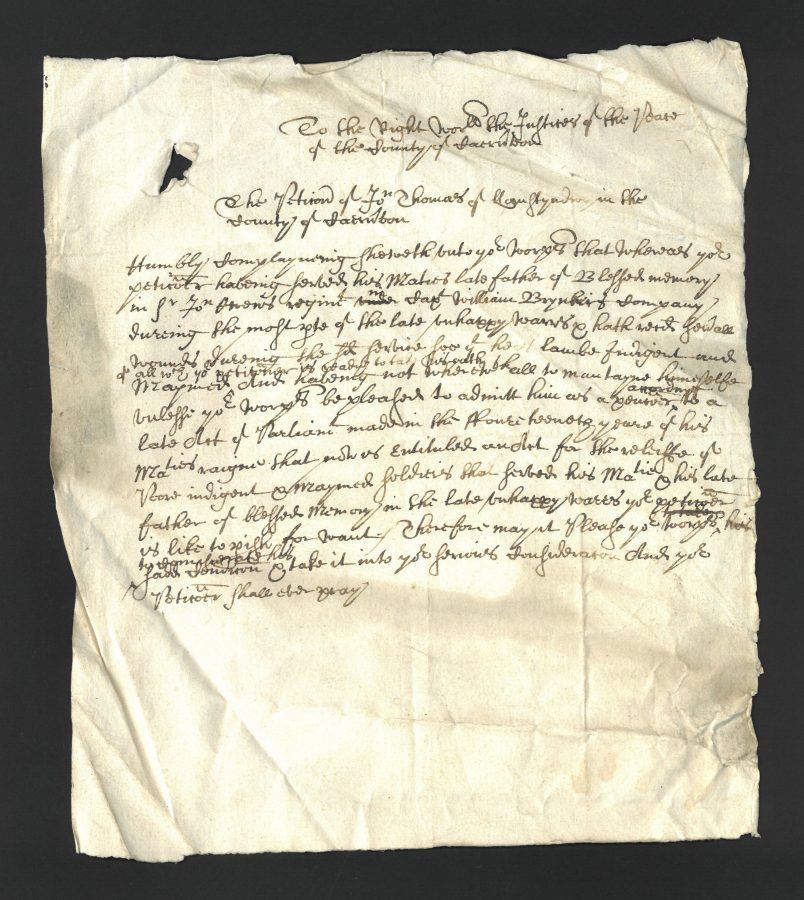 To the Right Worlls the Justices of the Peace
of the County of Caernvon
The Peticon of Jon Thomas of in the
County of Caernvon
Humbly Complayneing sheweth unto yor Worpps that whereas yor
peticoner haveing served his Maties late father of Blessed memory
in Sr Jon Owens regimt under Capt William Brynkirs Company
dureing the most pte of the late unhappy warrs & hath recd sevall
wounds dureing the sd service soe that he is become Indigent and
of all wch yor petitioner is ready to take his oath
Maymed And haveing not wherewthall to mantayne himselfe
unlesse yor Worpps be pleased to admitt him as a penconer according to a
late Act of Parliamt made in the ffourteeneth yeare of his
Maties raigne that now is Entituled an Act for the releiffe of
Pore indigent & Maymed soldiers that served his Matie & his late
father of blessed Memory in the late unhappy warrs yor peticoner
is like to pish for want Therefore may it Please yor worpps
to comiserate his
sadd Condicon & take it into yor serious Consideracon And yor
Peticoner shall ever pray